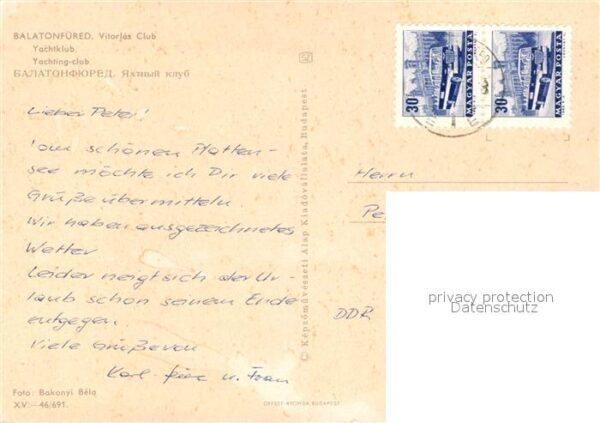 BALATONFÜRED. Vitorlás Club
Yachtklub.
Yachting-club
БАЛАТОНФЮРЕД. Яхтный клуб
Lieber Peter!
Vom schönen Platten-
see möchte ich Dir viele
Grüße übermitteln.
Wir haben ausgezeichnetes
Wetter
Leider neigt sich der Ur-
laub schon seinem Ende
entgegen
Viele Grüße von
Karl u. Frau
Foto: Bakonyi Béla
XV.—46/691.
© Képzőművészeti Alap Kiadóvállalata, Budapest
30 MAGYAR POSTA
30 MAGYAR POSTA
Herrn
Pe
DDR
privacy protection
Datenschutz